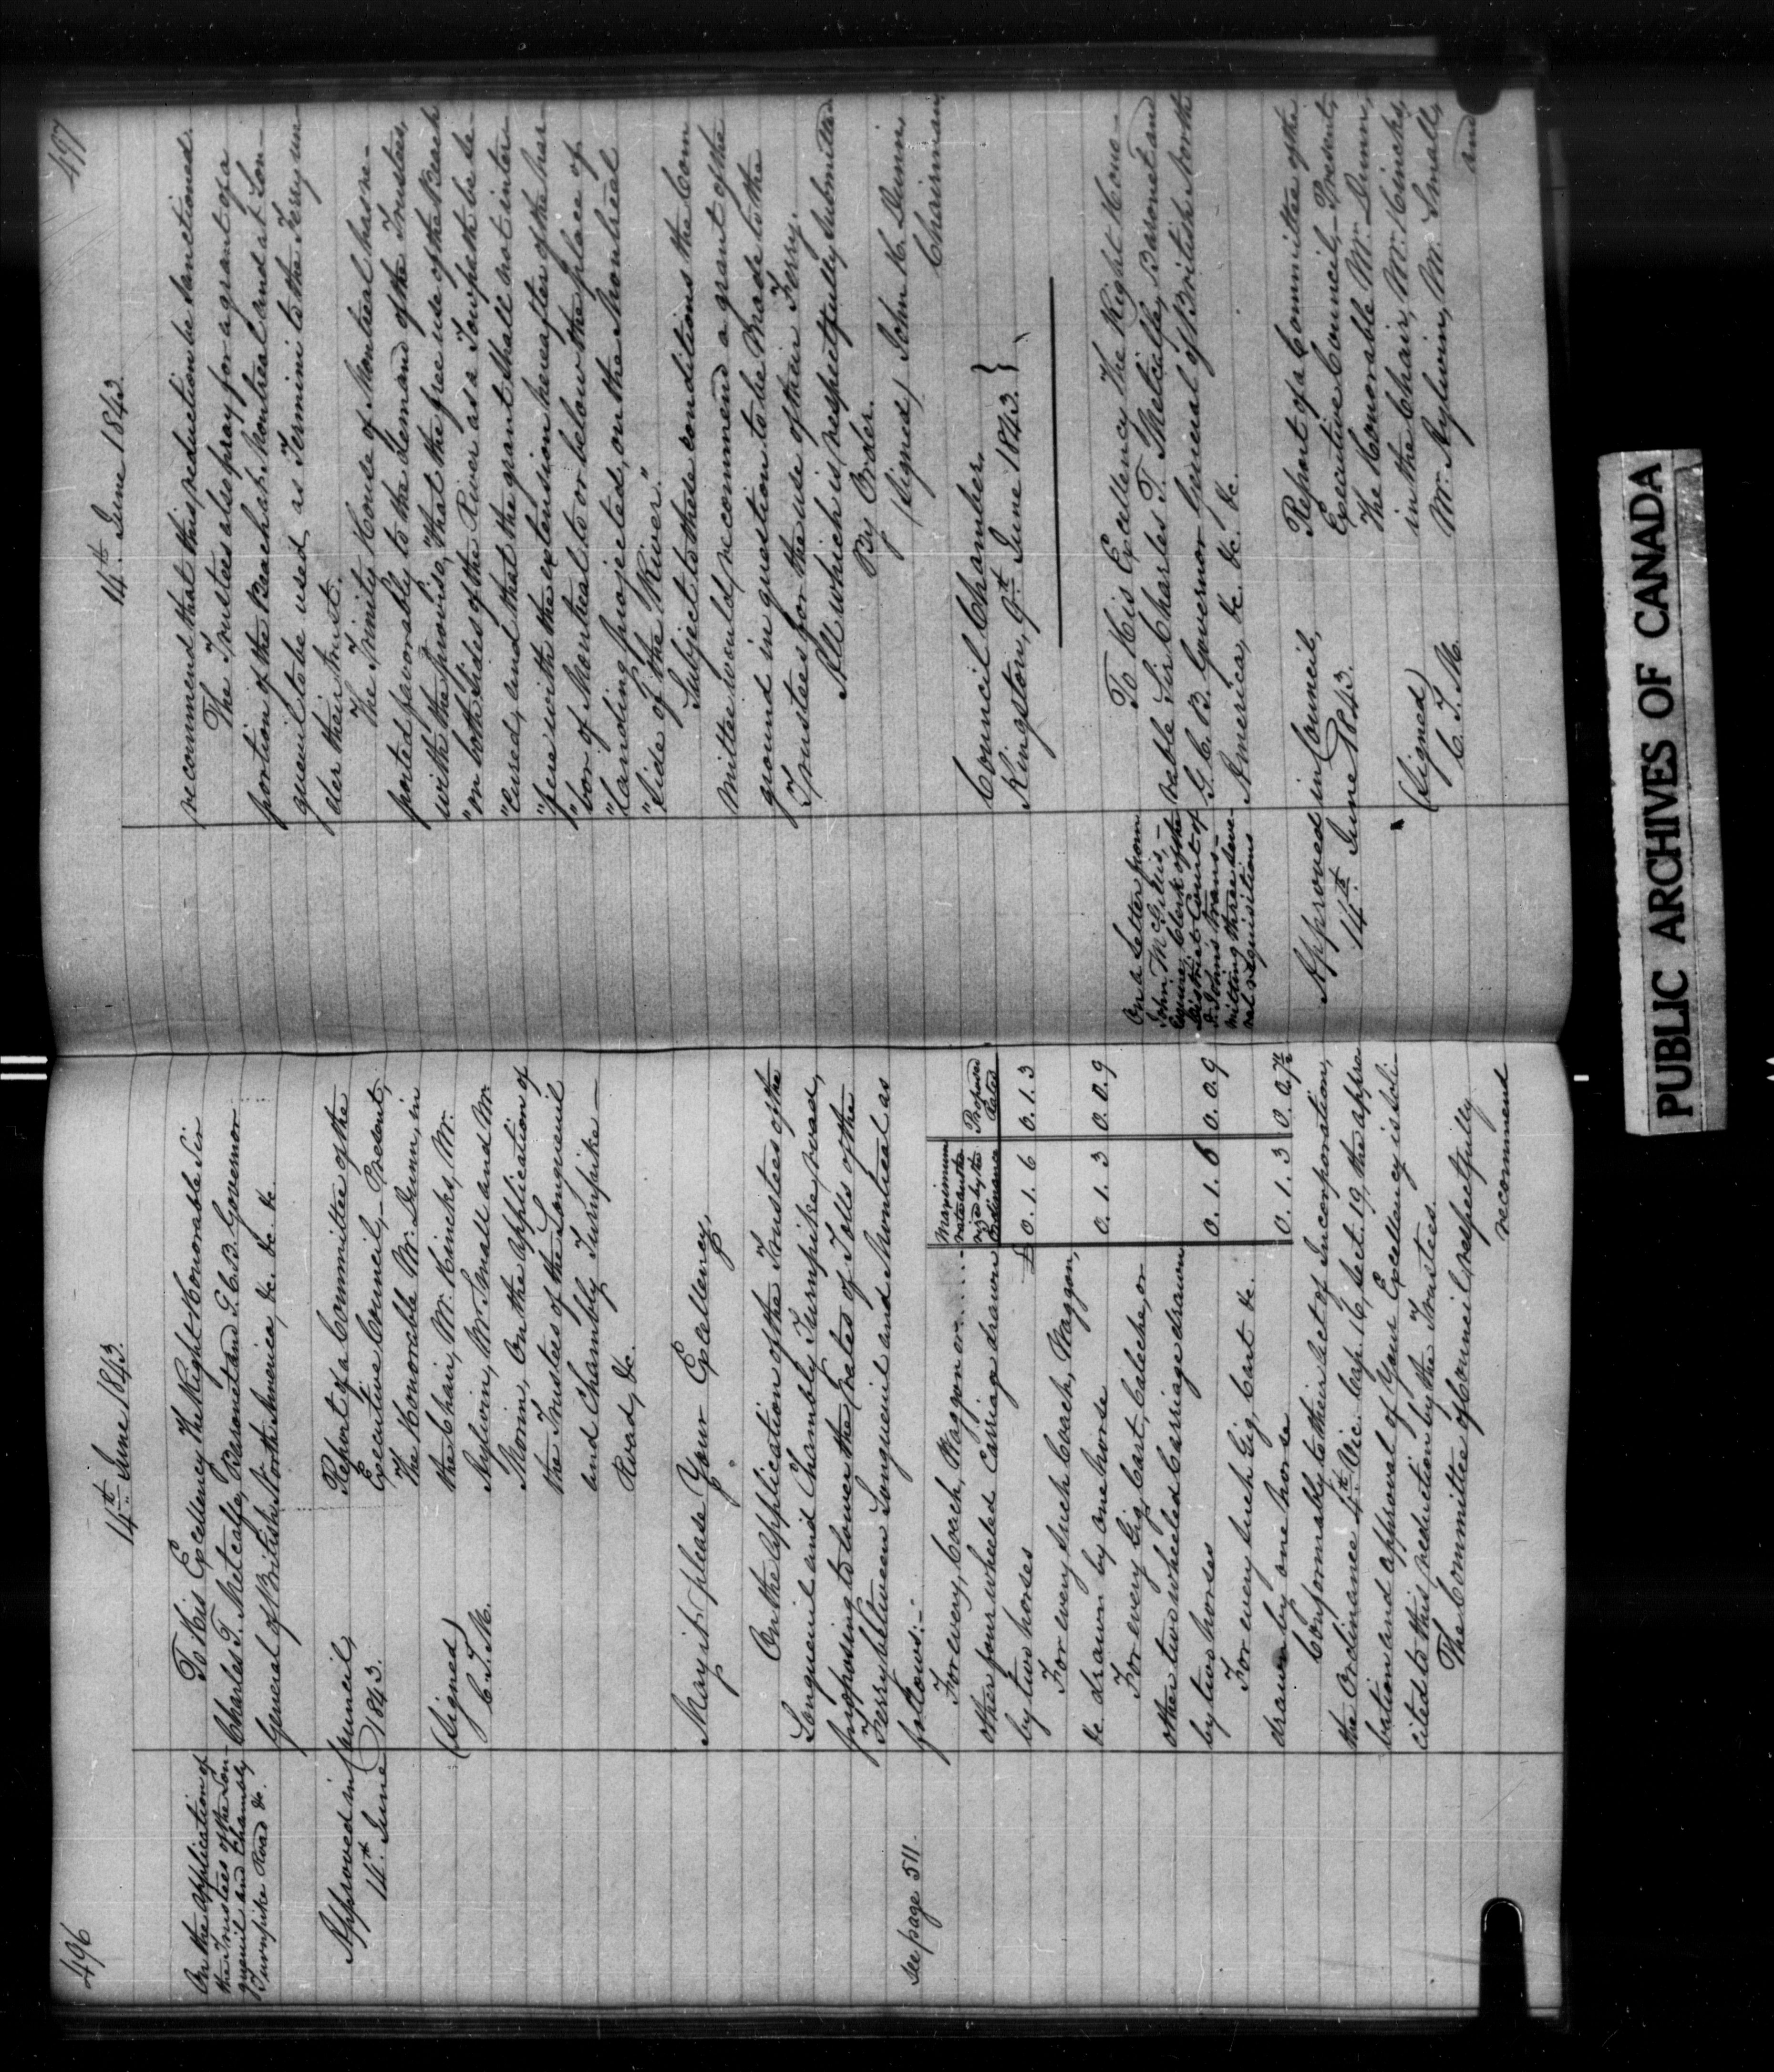 496
14th June 1843.
On the Application of
the Trustees of the Lon-
gueuil and Chambly
Turnpike Road &c.
To His Excellency The Right Honorable Sir
Charles T. Metcalfe, Baronet and G.C.B. Governor
General of British North America, &c. &c. &c.
Approved in Council,
14th June 1843.
(Signed)
C. T. M.
Report of a Committee of the
Executive Council,– Present,
The Honorable Mr. Dunn, in
the Chair, Mr. Hincks, Mr.
Aylwin, Mr. Small and Mr.
Morin, On the Application of
the Trustees of the Longueuil
and Chambly Turnpike –
Road, &c.
May it please Your Excellency,
On the Application of the Trustees of the
Longueuil and Chambly Turnpike road,
proposing to lower the rates of Tolls of the
Ferry between Longueuil and Montreal as
follows:–
see page 511.
Maximum
rate autho-
rized by the
Ordinance
Proposed
Rates
For every, Coach, Waggon or
other four wheeled Carriage drawn
by two horses £ 0. 1. 6 0. 1. 3
For every such Coach, Waggon,
&c. drawn by one horse 0. 1. 3 0. 0. 9
For every Gig, Cart, Caleche, or
other two wheeled Carriage drawn
by two horses 0. 1. 6 0. 0. 9
For every such Gig, Cart &c.
drawn by one horse 0. 1. 3 0. 0. 7½
Conformably to their Act of Incorporation,
the Ordinance 4th Vic. Cap. 16, Sect. 19, the appro-
bation and approval of Your Excellency is soli-
cited to this reduction by the Trustees.
The Committee of Council, respectfully
recommend
497
14th June 1843.
recommend that this reduction be sanctioned.
The Trustees also pray for a grant of a
portion of the Beach at Montreal and at Lon-
gueuil to be used as Termini to the Ferry un-
der their trust.
The Trinity House of Montreal has re-
ported favorably to the demand of the Trustees,
with the proviso, "That the free use of the Beach
"on both sides of the River as a Towpath be se-
"cured, and that the grant shall not inter-
"fere with the extension hereafter of the har-
"bor of Montreal to or below the place of
"landing projected, on the Montreal
"side of the River."
Subject to these conditions the Com-
mittee would recommend a grant of the
ground in question to be made to the
Trustees for the use of their Ferry.
All which is respectfully submitted
By Order.
(Signed) John H. Dunn,
Chairman,
Council Chamber,
Kingston, 9th June 1843. }
On a Letter from
John McGillis, –
Esquire, Clerk of the
District Court of
St. Johns trans-
mitting three seve-
ral requisitions
To His Excellency The Right Hono-
rable Sir Charles T. Metcalfe, Baronet and
G.C.B. Governor General of British North
America, &c. &c. &c.
Approved in Council,
14th June 1843.
(Signed)
C. T. M.
Report of a Committee of the
Executive Council,– Present,
The Honorable Mr. Dunn,
in the Chair, Mr. Hincks,
Mr. Aylwin, Mr. Small,
and
PUBLIC ARCHIVES OF CANADA